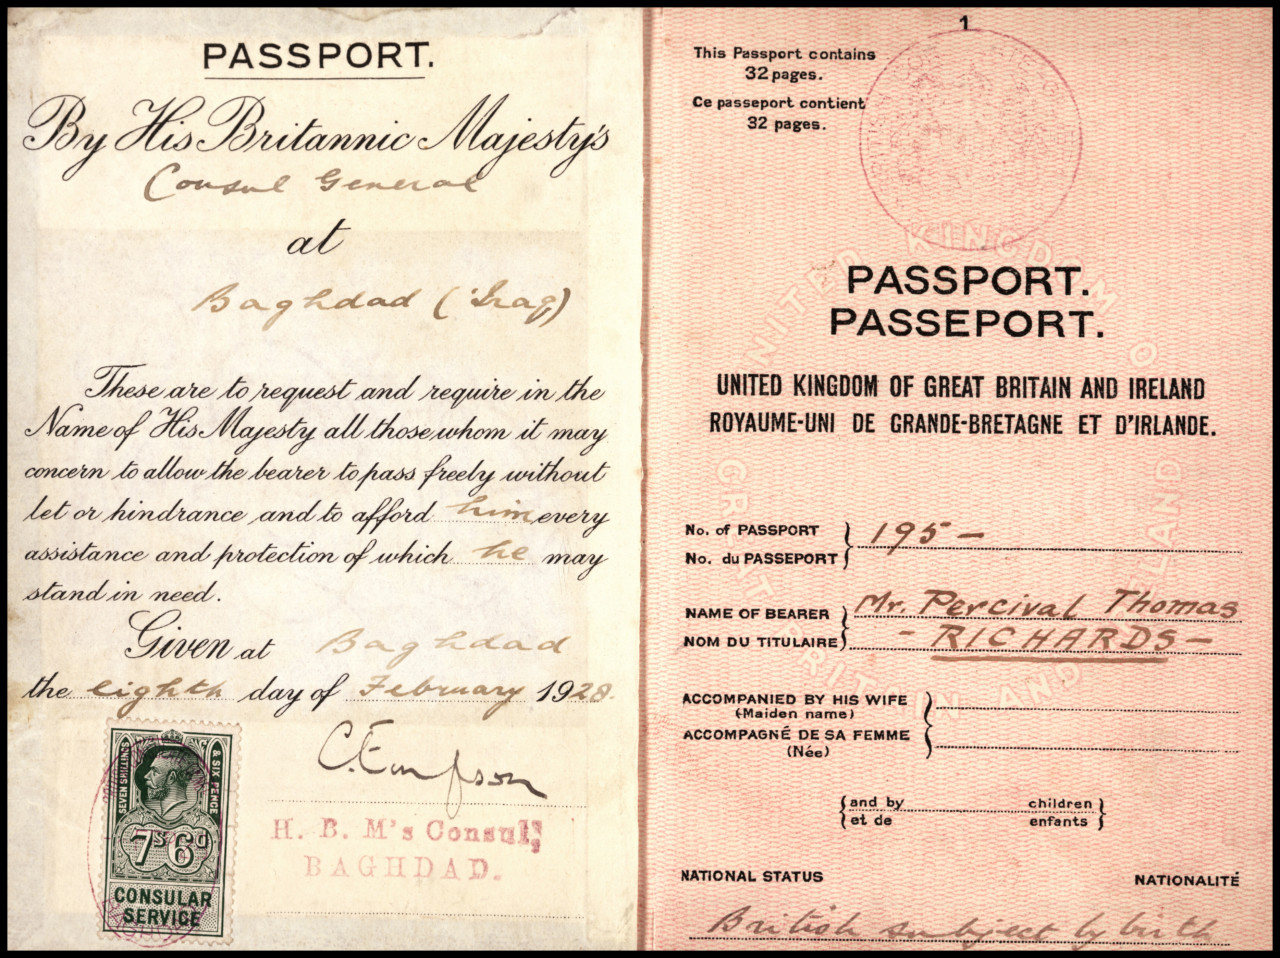 PASSPORT.
By His Britannic Majesty's
Consul General
at
Baghdad ('Iraq)
These are to request and require in the
Name of His Majesty all those whom it may
concern to allow the bearer to pass freely without
let or hindrance and to afford him every
assistance and protection of which he may
stand in need.
Given at Baghdad
the eighth day of February 1928.
SEVEN SHILLINGS & SIX PENCE
7s 6d
CONSULAR
SERVICE
C. Empson
H. B. M's Consul,
BAGHDAD.
1
This Passport contains
32 pages.
Ce passeport contient
32 pages.
UNITED KINGDOM OF GREAT BRITAIN AND IRELAND
PASSPORT.
PASSEPORT.
UNITED KINGDOM OF GREAT BRITAIN AND IRELAND
ROYAUME-UNI DE GRANDE-BRETAGNE ET D'IRLANDE.
No. of PASSPORT
No. du PASSEPORT
195 -
NAME OF BEARER
NOM DU TITULAIRE
Mr. Percival Thomas
- RICHARDS -
ACCOMPANIED BY HIS WIFE
(Maiden name)
ACCOMPAGNÉ DE SA FEMME
(Née)
and by children
et de enfants
NATIONAL STATUS NATIONALITÉ
British subject by birth